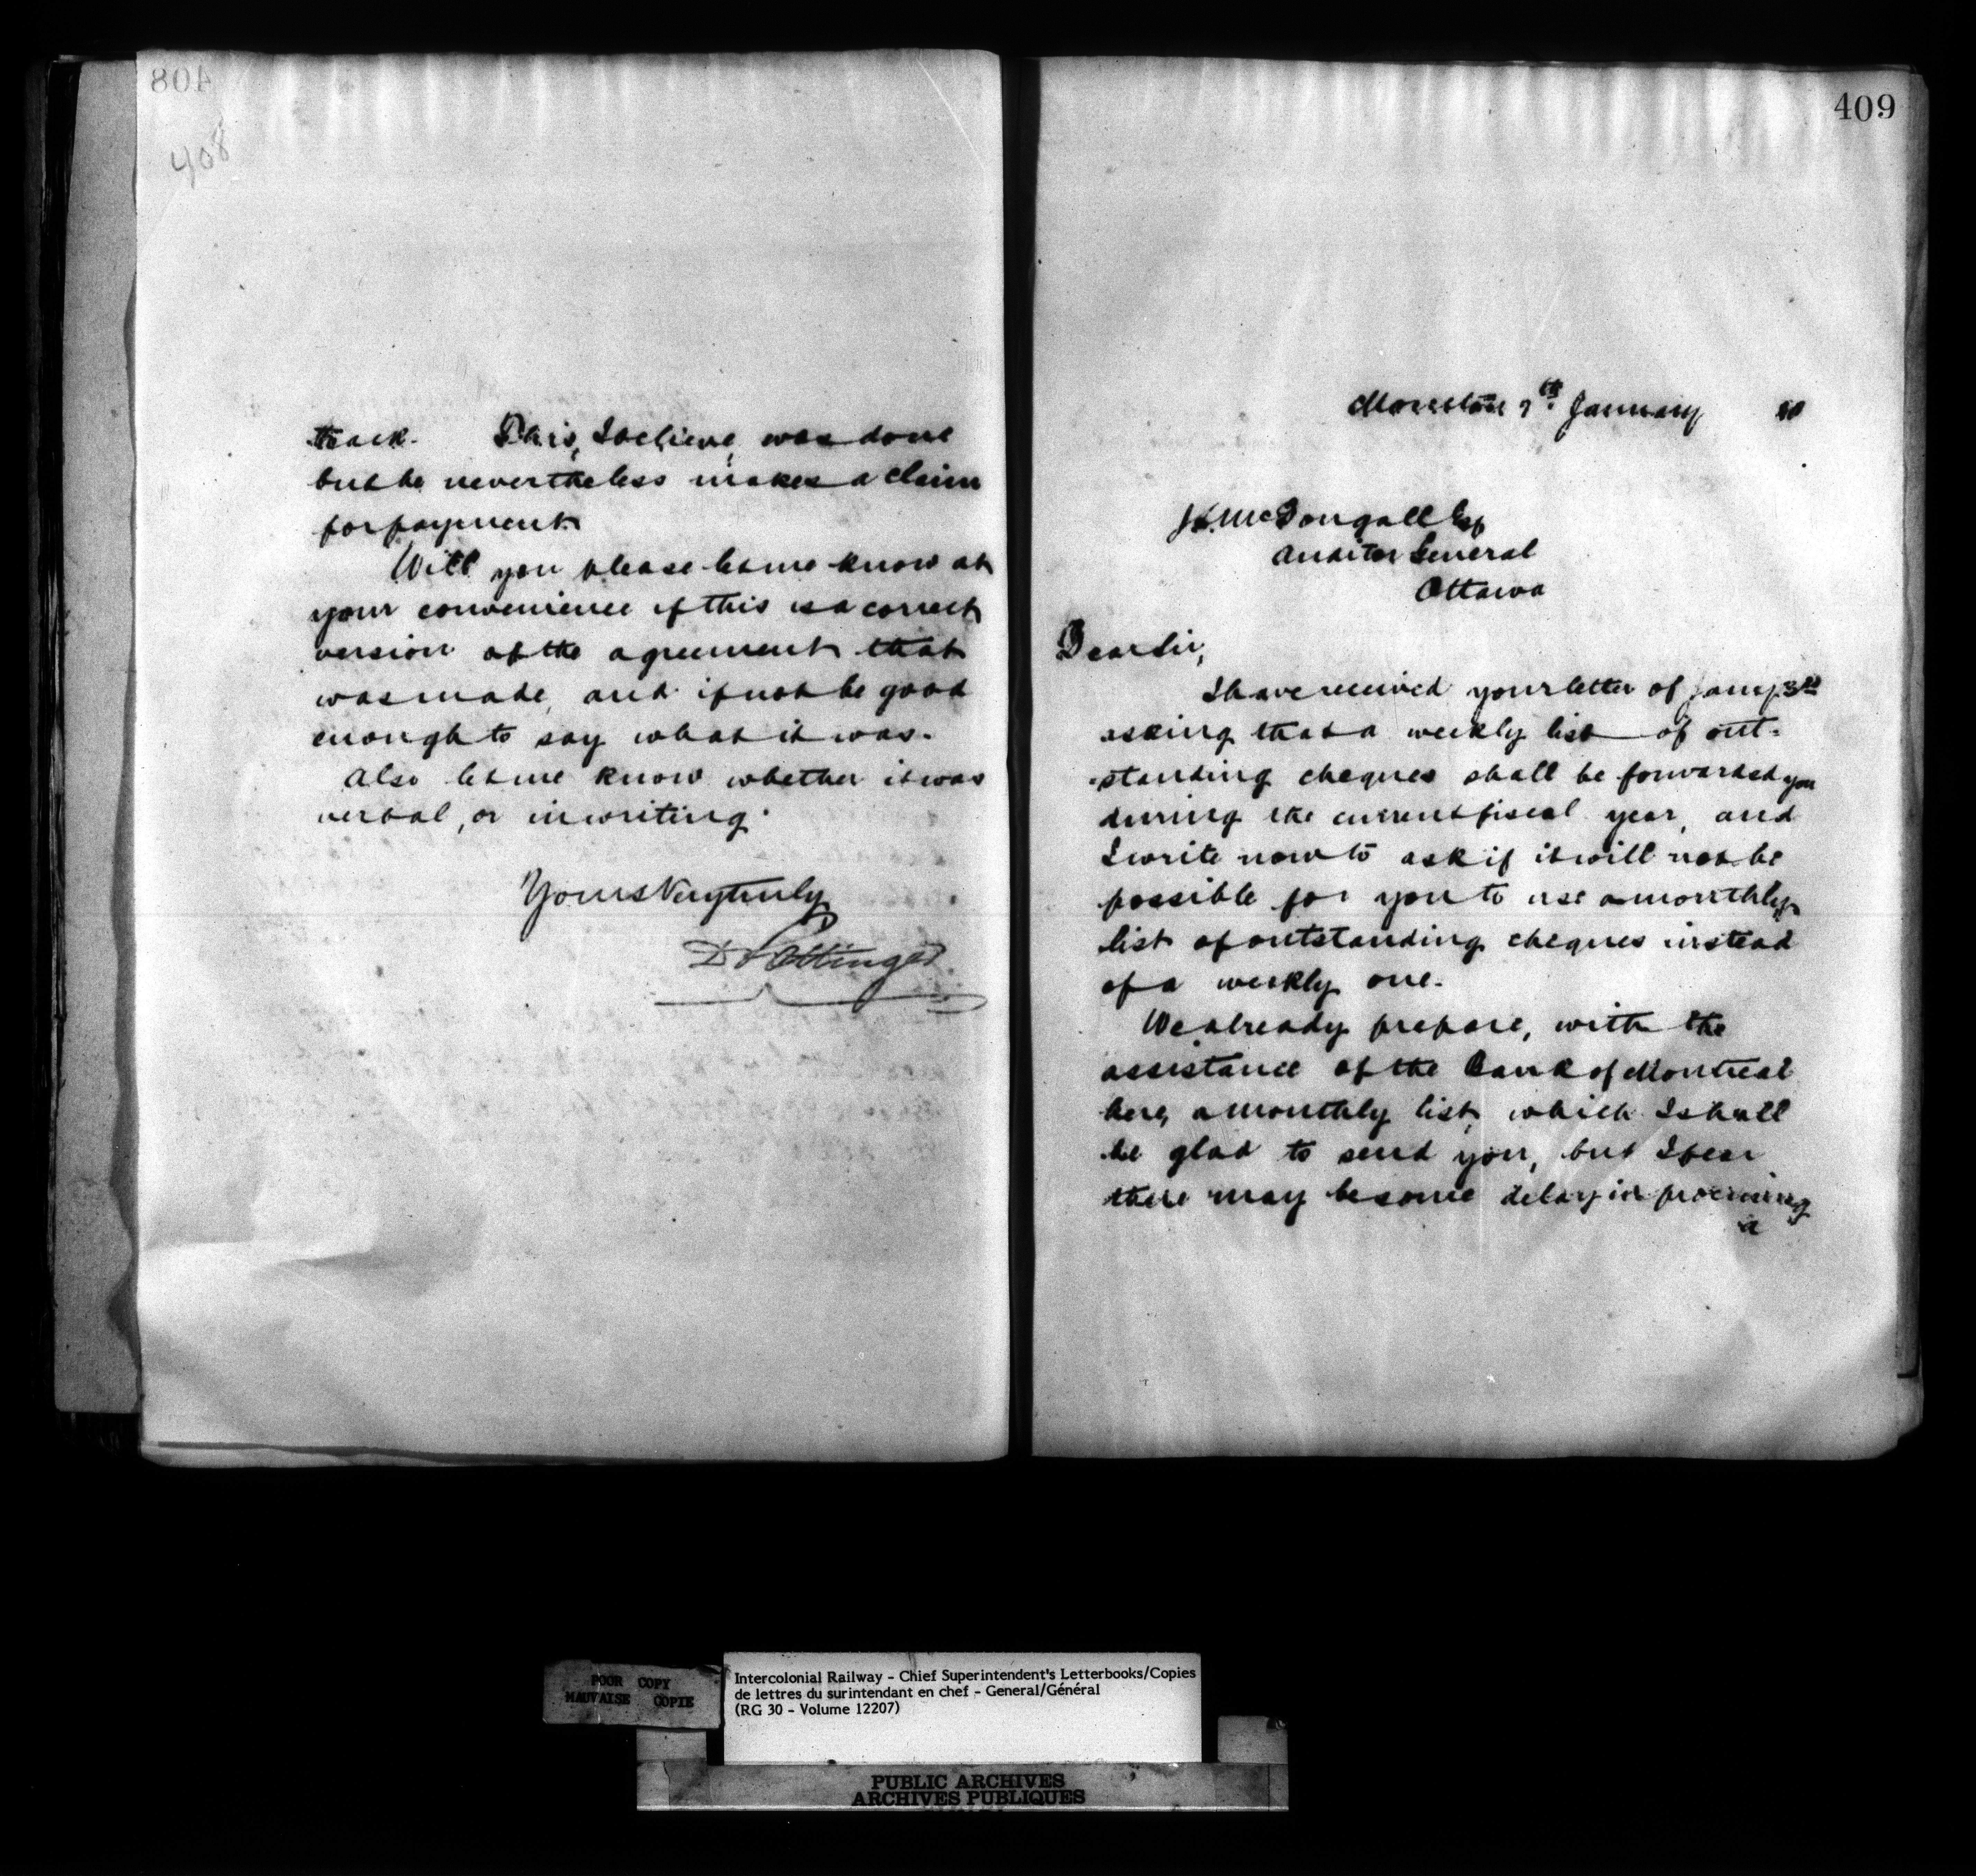 408
408
track. This, I believe, was done
but he nevertheless makes a claim
for payment.
Will you please let me know at
your convenience if this is a correct
version of the agreement that
was made, and if not be good
enough to say what it was.
Also let me know whether it was
verbal, or in writing.
Yours Very truly
D Pottinger
409
Moncton 7th. January 90
J.L. McDougall Esq
Auditor General
Ottawa
Dear Sir,
I have received your letter of Jany 3rd
asking that a weekly list of out-
-standing cheques shall be forwarded you
during the current fiscal year, and
I write now to ask if it will not be
possible for you to use a monthly
list of outstanding cheques instead
of a weekly one.
We already prepare, with the
assistance of the Bank of Montreal
here, a monthly list, which I shall
be glad to send you, but I fear
there may be some delay in procuring
a
POOR COPY
MAUVAISE COPIE
Intercolonial Railway - Chief Superintendent's Letterbooks/Copies
de lettres du surintendant en chef - General/Général
(RG 30 - Volume 12207)
PUBLIC ARCHIVES
ARCHIVES PUBLIQUES